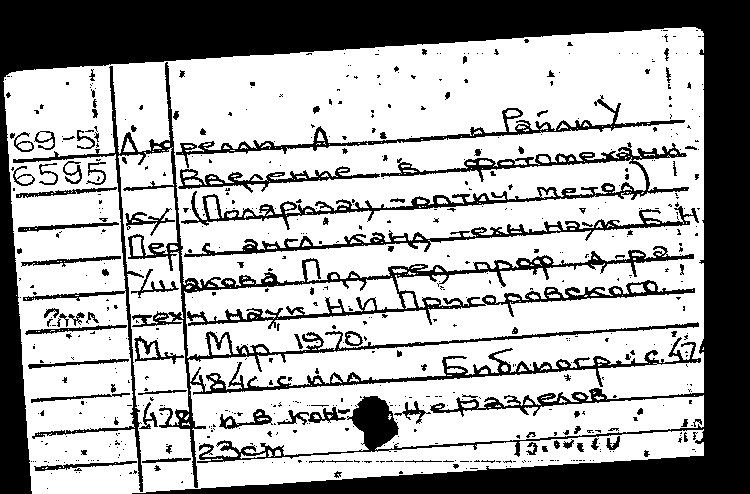 69-5 Дюрелли, А. и Райли, У
6595 Введение в фотомехани-
ку (Поляризац.-оптич. метод)
Пер. с англ. канд. техн. наук Б.Н.
Ушакова Под ред. проф., д-ра
техн. наук Н.И. Пригоровского.
М., "Мир", 1970.
484с. с илл. Библиогр.: с. 474
-478 и в кон- це разделов.
23см